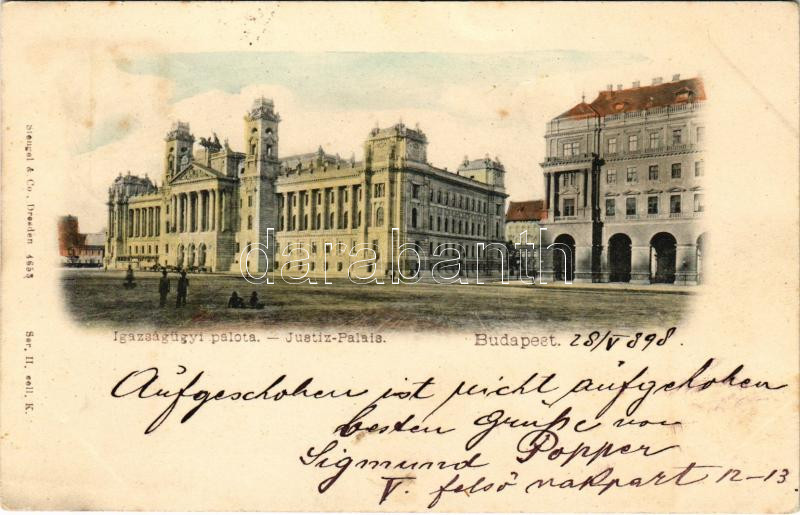 Stengel & Co., Dresden 4653
Ser. II. coll. K.
darabanth
Igazságügyi palota. — Justiz-Palais.
Budapest. 28/V 898.
Aufgeschoben ist nicht aufgehoben
besten Grüße von
Sigmund Popper
V. felső rakpart 12-13